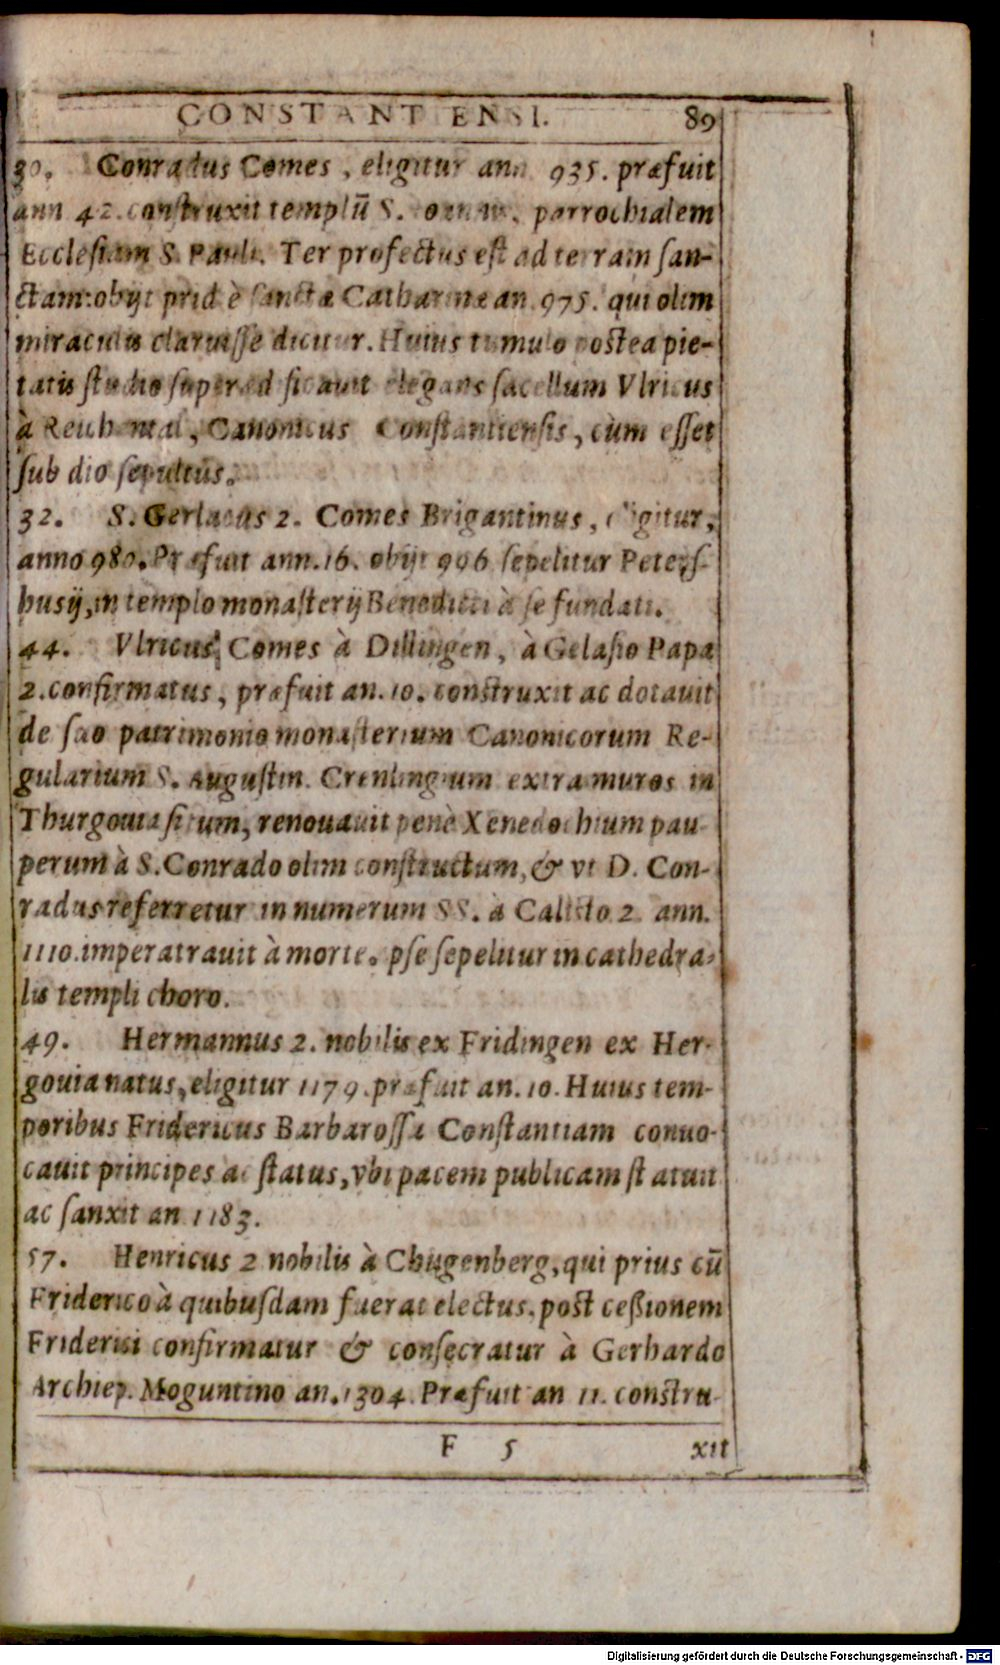 CONSTANTIENSI. 89
30. Conradus Comes, eligitur ann 935. præfuit
ann 42. construxit templũ S. parrochialem
Ecclesiam S. Pauli. Ter profectus est ad terram san-
ctam: obijt prid è sanctæ Catharinæ an. 975. qui olim
miraculis claruisse dicitur. Huius tumulo postea pie-
tatis studio superædificauit elegans sacellum Vlricus
à Reichental, Canonicus Constantiensis, cùm esset
sub dio sepultus.
32. S. Gerlacus 2. Comes Brigantinus, eligitur,
anno 980. Præfuit ann. 16. obijt 996 sepelitur Peters-
husij, in templo monasterij Benedicti à se fundati.
44. Vlricus, Comes à Dillingen, à Gelasio Papa
2. confirmatus, præfuit an. 10. construxit ac dotauit
de suo patrimonio monasterium Canonicorum Re-
gularium S. Augustin. Crenlingium extra muros in
Thurgouia situm, renouauit penè Xenedochium pau-
perum à S. Conrado olim constructum, & vt D. Con-
radus referretur in numerum SS. à Calicto 2. ann.
1110. imperatrauit à morte. pse sepelitur in cathedra-
lis templi choro.
49. Hermannus 2. nobilis ex Fridingen ex Her-
gouia natus, eligitur 1179. præfuit an. 10. Huius tem-
poribus Fridericus Barbarossa Constantiam conuo-
cauit principes ac status, vbi pacem publicam statuit
ac sanxit an 1183.
57. Henricus 2 nobilis à Chugenberg, qui prius cũ
Friderico à quibusdam fuerat electus, post ceßionem
Friderici confirmatur & consecratur à Gerhardo
Archiep. Moguntino an. 1304. Præfuit an 11. constru-
F 5 xit
Digitalisierung gefördert durch die Deutsche Forschungsgemeinschaft - DFG